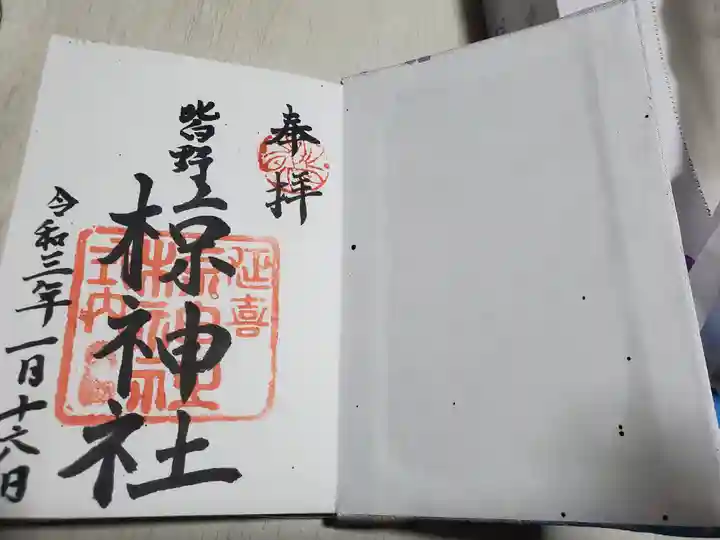 奉拝
皆野
椋神社
延喜
式内
椋神社
令和三年一月十六日